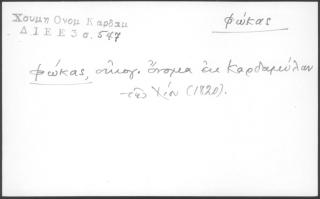 Χουμη Ονομ Καρδαμ
ΔΙΕΕ3 σ. 547
φώκας
φώκας, οἰκογ. ὄνομα ἐκ Καρδαμύλων
τῆς Χίου (1820).